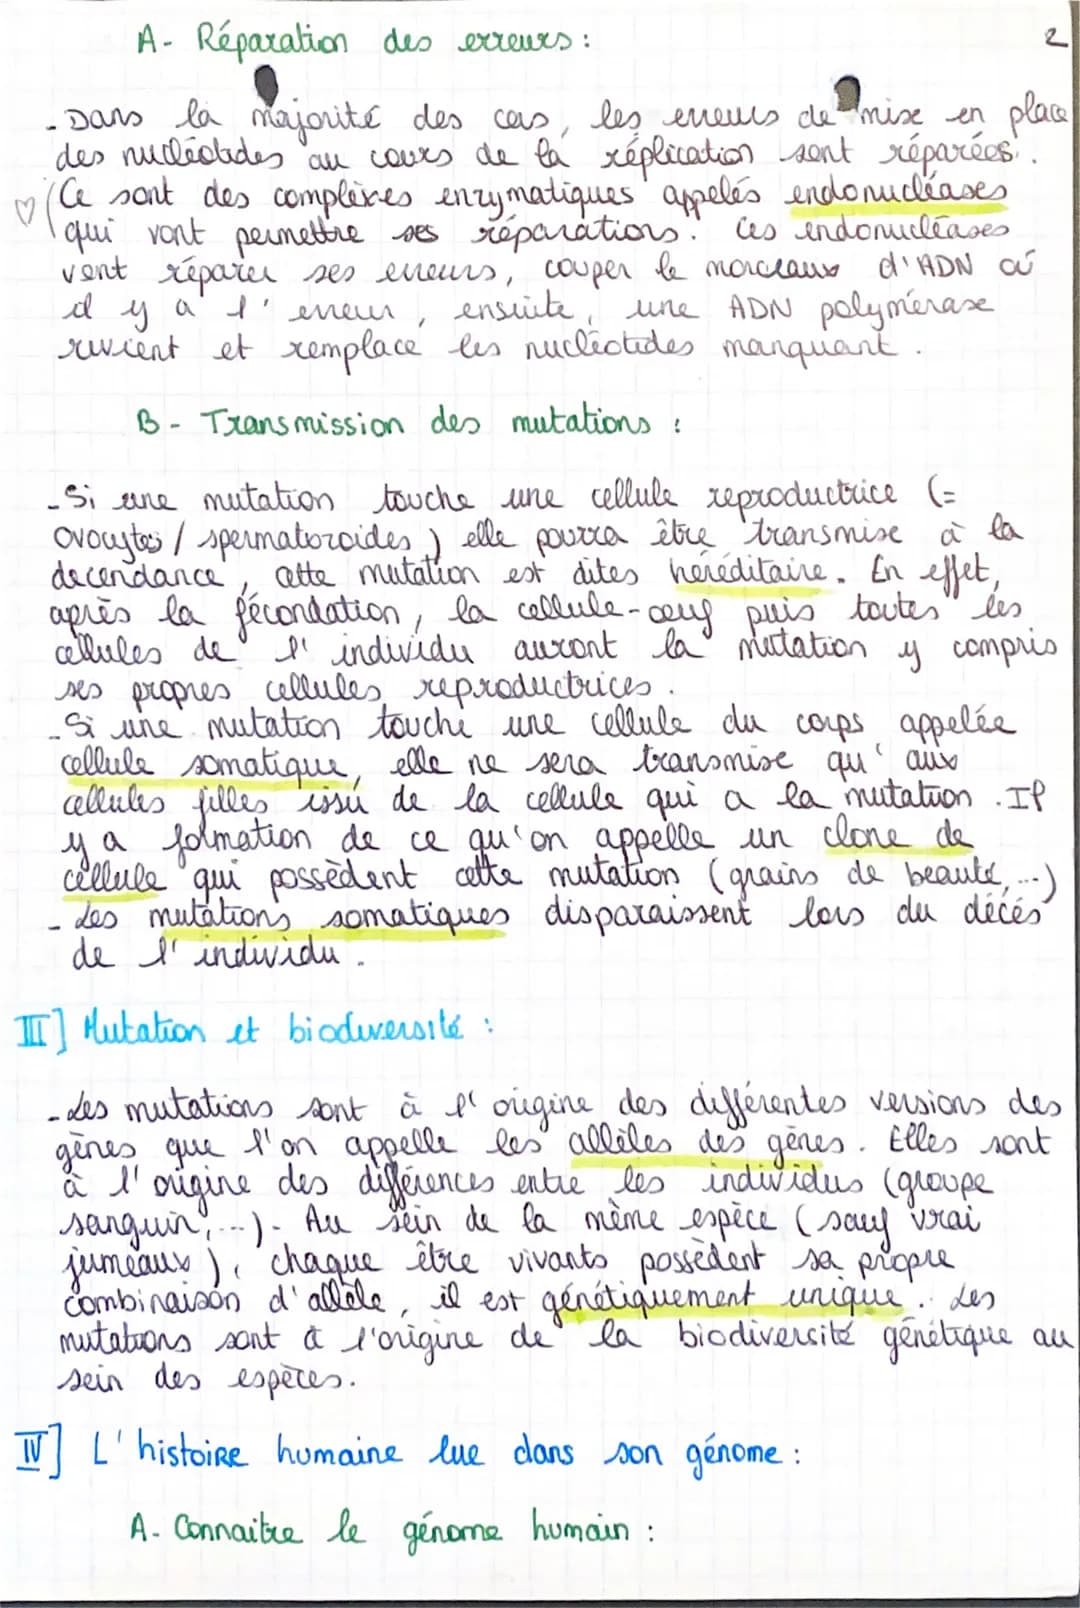 A- Réparation des erreurs :
2
- Dans la majorité des cas, les erreurs de mise en place
des nucléotides au cours de la réplication sont réparées.
Ce sont des complexes enzymatiques appelés endonucléases
qui vont permettre ses réparations. Ces endonucléases
vont réparer ses erreurs, couper le morceaux d'ADN où
il y a l'erreur, ensuite, une ADN polymérase
revient et remplace les nucléotides manquant.
B- Transmission des mutations :
- Si une mutation touche une cellule reproductrice (=
ovocytes / spermatozoides) elle pourra être transmise à la
decendance, cette mutation est dites héréditaire. En effet,
après la fécondation, la cellule-oeuf puis toutes les
cellules de l'individu auront la mutation y compris
ses propres cellules reproductrices.
- Si une mutation touche une cellule du corps appelée
cellule somatique, elle ne sera transmise qu'aux
cellules filles issu de la cellule qui a la mutation. Il
y a formation de ce qu'on appelle un clone de
cellule qui possèdent cette mutation (grains de beauté, ...)
- Les mutations somatiques disparaissent lors du décés
de l'individu.
III] Mutation et biodiversité :
- Les mutations sont à l'origine des différentes versions des
gènes que l'on appelle les allèles des gènes. Elles sont
à l'origine des différences entre les individus (groupe
sanguin, ...). Au sein de la même espèce (sauf vrai
jumeaux), chaque être vivants possèdent sa propre
combinaison d'allèle, il est génétiquement unique. Les
mutations sont à l'origine de la biodiversité génétique au
sein des espèces.
IV] L'histoire humaine lue dans son génome :
A- Connaitre le génome humain :